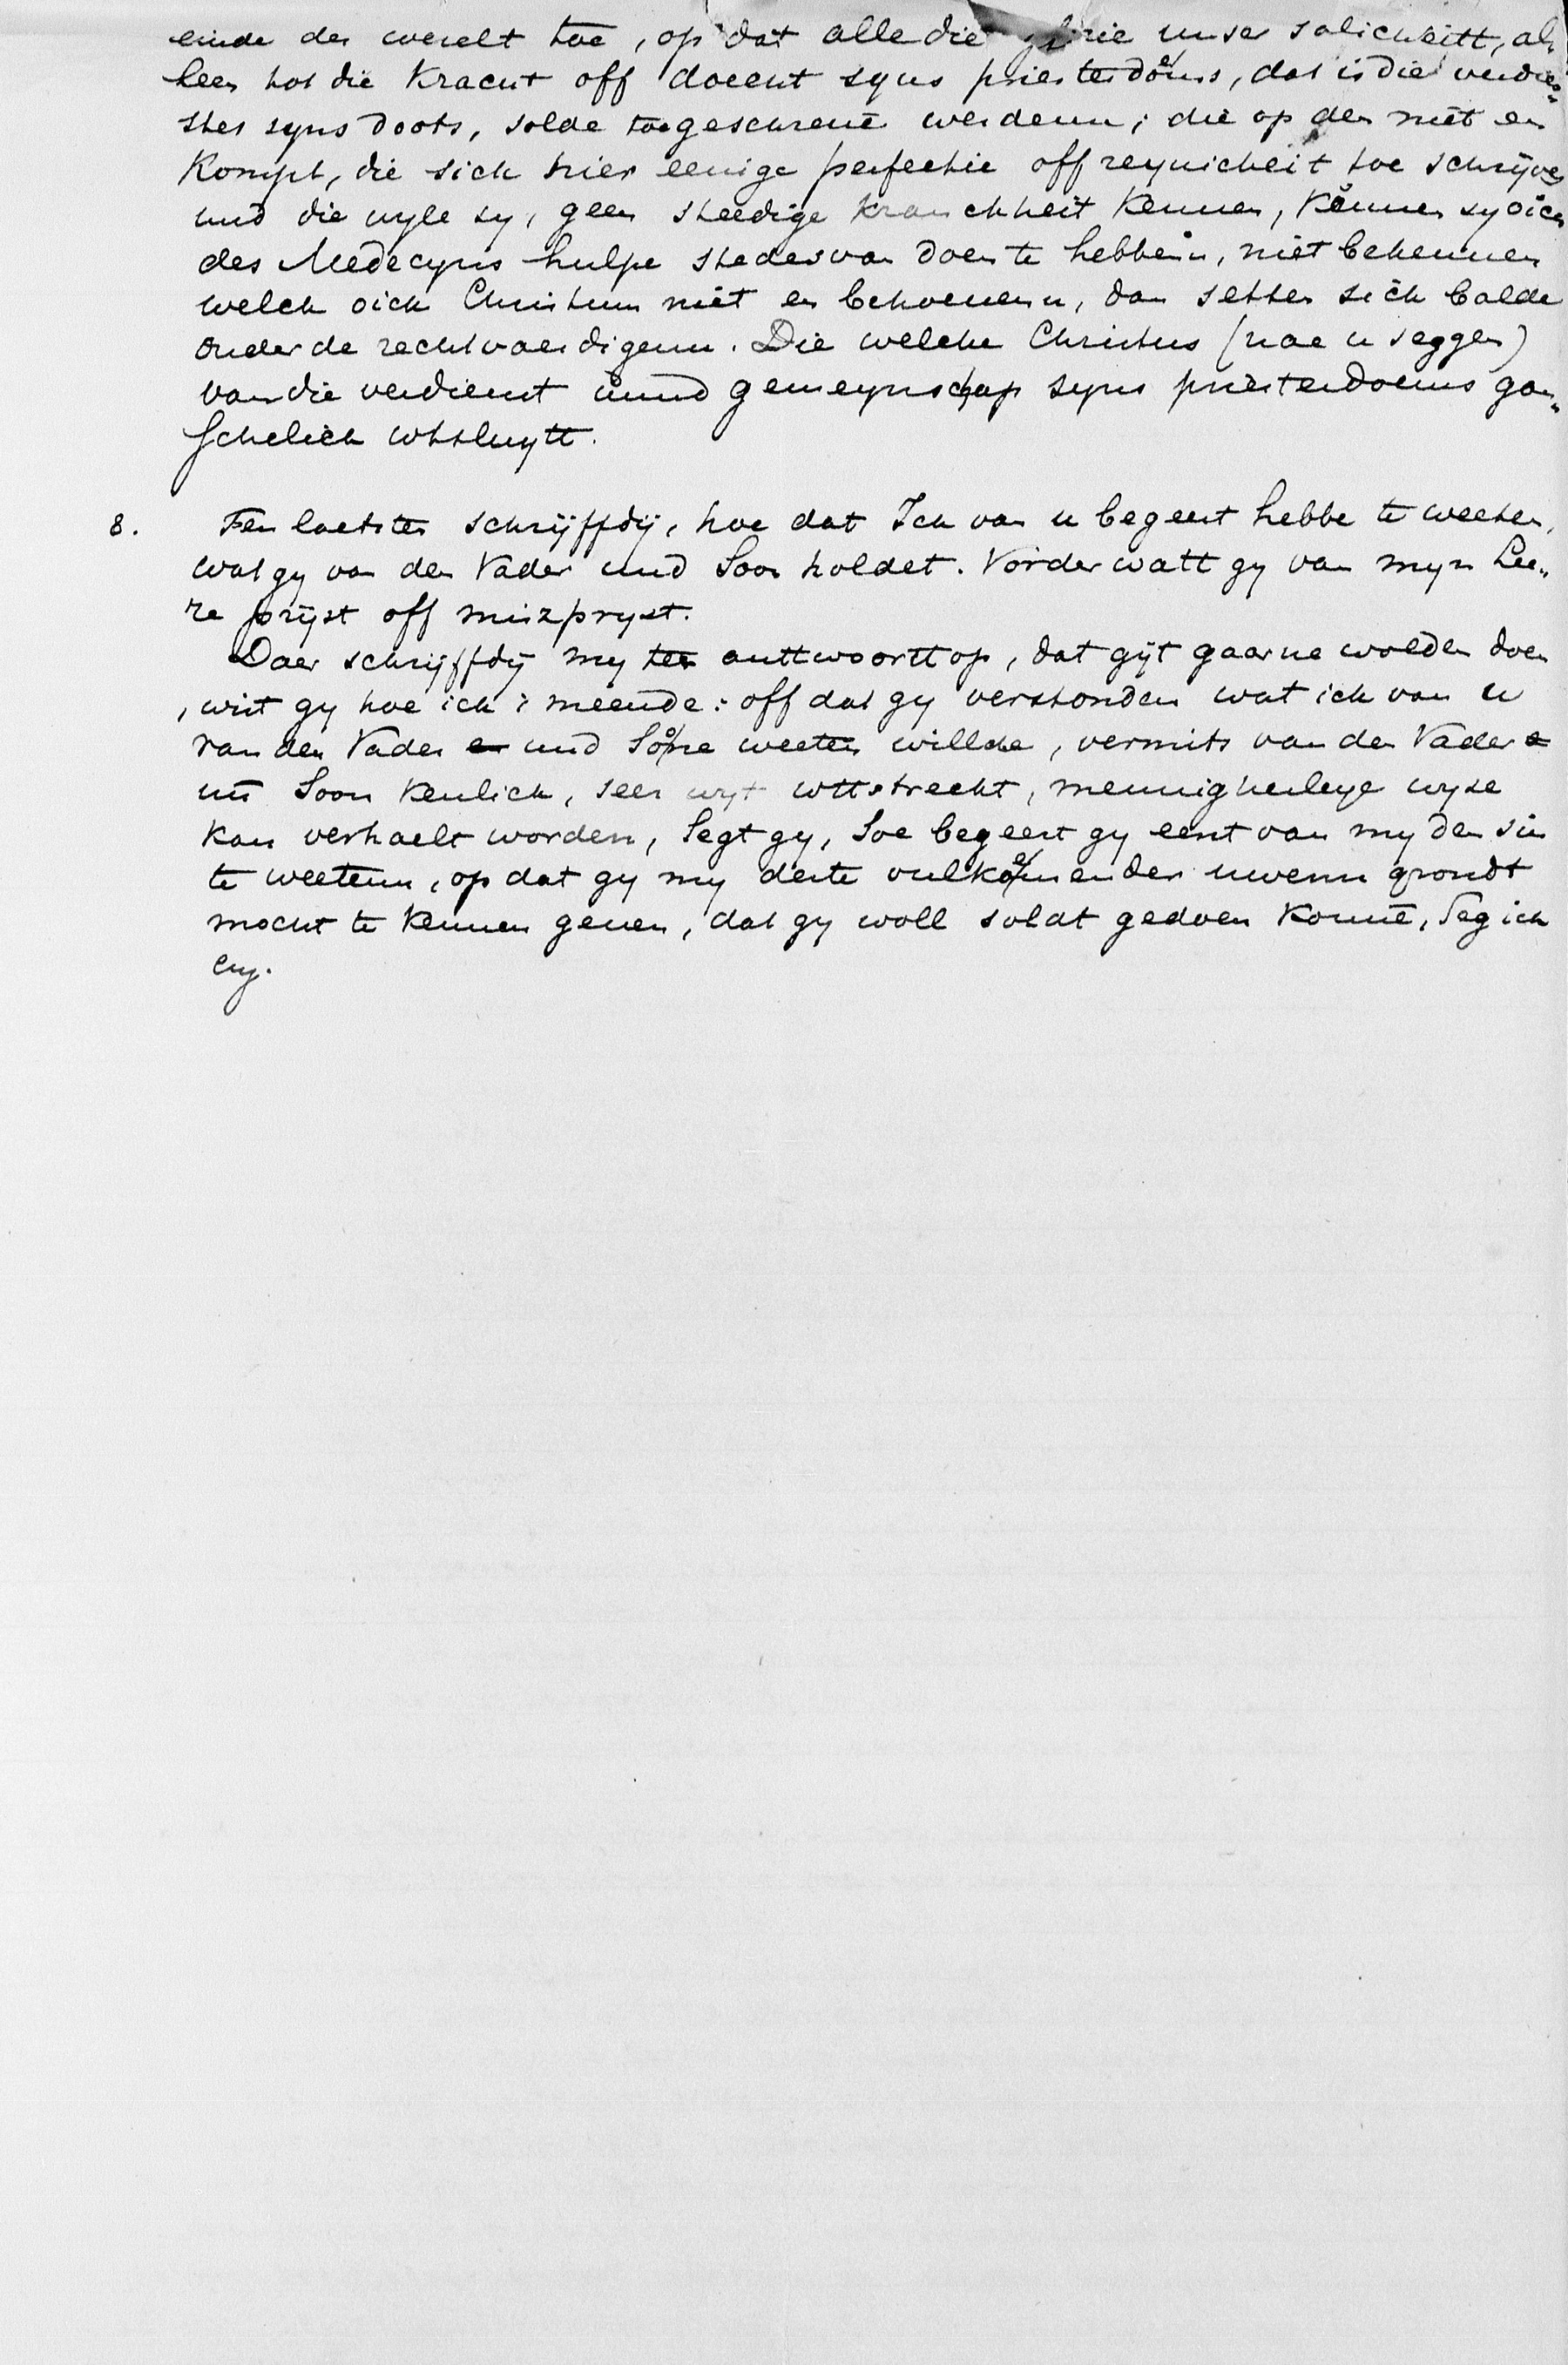 einde der werelt toe, op dat alle die glorie unser salicheitt, al-
leen tot die Kracht off doecht syns priesterdoms, dat is die verdien„
sten syns doots, solde toegeschreuē werdenn; die op der niet en
Kompt, die sich hier eenige perfectie off reynicheit toe schrijven
und die wyle sy, geen steedige kranckheit Kennen, Kënnen sy oick
des Medecyns hulpe stedes van doen te hebbenn, niet bekennen
welck oick Christum niet en behoeuenn, dan setten sich balde
onder de rechtvaerdigenn. Die welcke Christus (nae u seggen)
van die verdienst unnd gemeynschap syns priesterdoms gan„
schelick wtsluytt.
8. Ten laetsten schrijffdij, hoe dat Ick van u begeert hebbe te weeten,
wat gy van den Vader und Soon holdet. Vorder watt gy van myn Lee„
re prijst off mizpryst.
Daer schrijffdij my ter anttwoortt op, dat gijt gaerne wolden doen
, wist gy hoe ick 't meende: off dat gy verstonden wat ick van u
van den Vader en und Sone weeten willde, vermits van den Vader e
uñ Soon Kenlick, seer wyt wttstreckt, mennigherleye wyse
kan verhaelt worden, Segt gy, Soe begeert gy eerst van my den sin
te weetenn, op dat gy my deste vulkomender uwenn grondt
mocht te Kennen geuen, dat gy woll soldt gedoen Konnē, Seg ick
my.